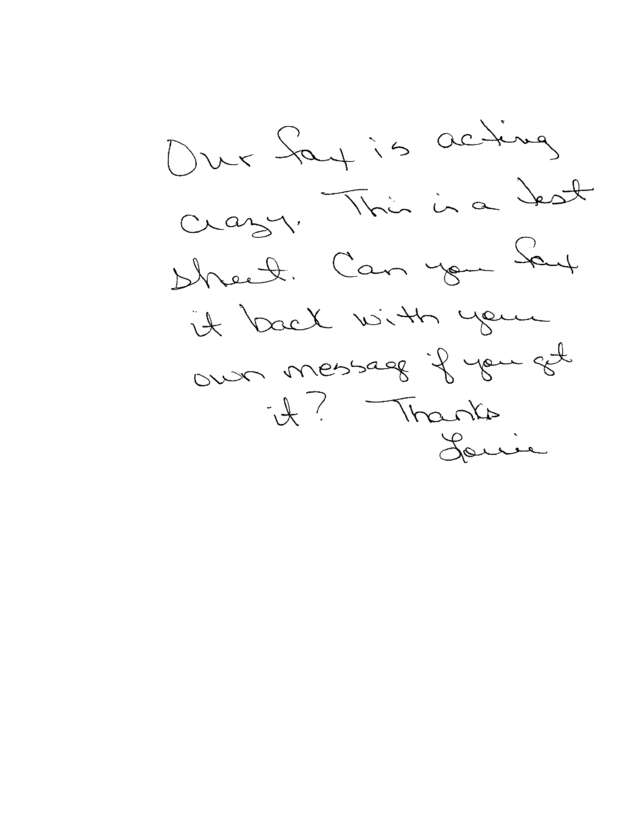 Our fax is acting
crazy. This is a test
sheet. Can you fax
it back with your
own message if you get
it? Thanks